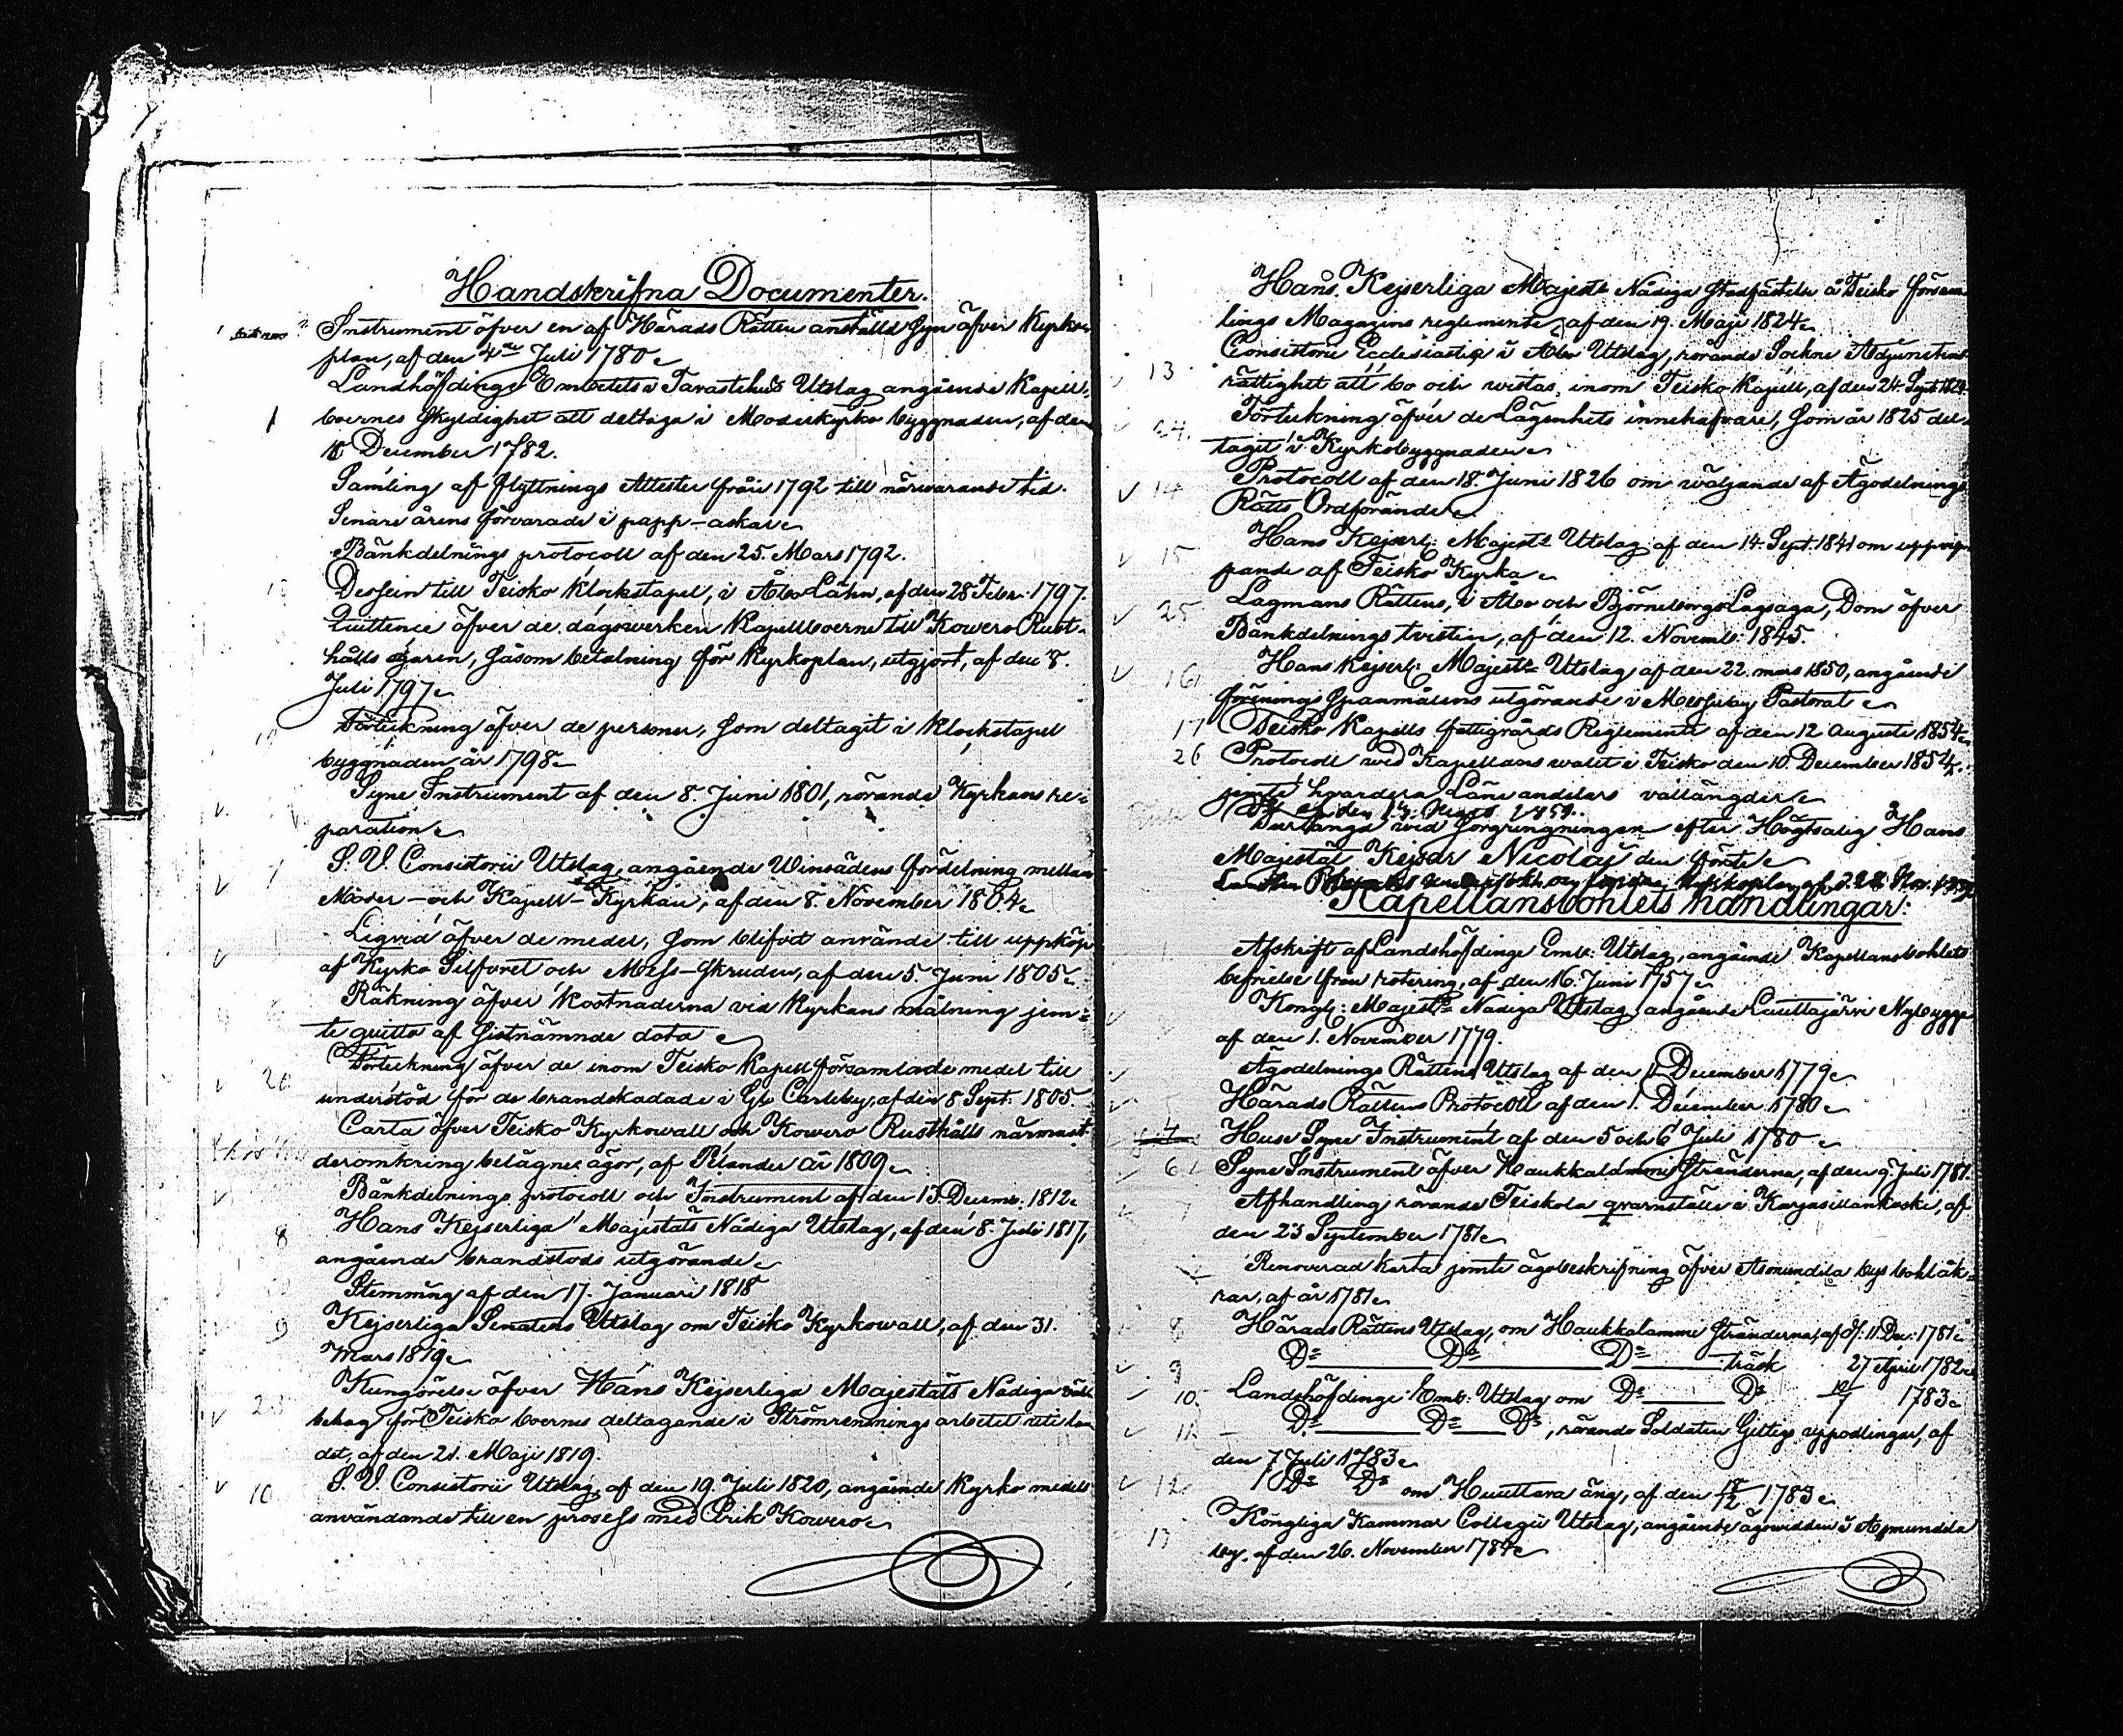 Handskrifna Documenter.
Instrument öfver en af Härads Rätten anställd Syn öfver Kyrko-
plan, af den 4de Juli 1780
Landshöfdinge Embetets i Tavastehus Utslag angående Kapell-
1 boernes Skyldighet att deltaga i Moderkyrko byggnaden, af den
December 1782.
Samling af flyttnings Attester från 1792 till närwarande tid.
Senare årens förvarade i papp-askar
Bänkdelnings protocoll af den 25. Mars 1792.
Dessein till Teisko Klockstapel, i Åbo Lähn, af den 28 Febr. 1797.
Quittence öfver de dagswerken Kapellboerne till Kowero Rust-
hålls egaren, såsom betalning för Kyrkoplan, utgjort, af den 8.
Juli 1797
Förtekning öfver de personer, som deltagit i Klockstapel
byggnaden år 1798
Syne Instrument af den 8. Juni 1801, rörande Kyrkans re-
paration
7 S. V. Consistorii Utslag, angående Winsädens fördelning mellan
Moder- och Kapell-Kyrkan, af den 8. November 1804
Liqvid öfver de medel, som blifvit använde till uppköp
af Kyrko Silfvret och Mess-Skruden, af den 5. Juni 1805
Räkning öfver kostnaderna vid Kyrkans målning jem-
te quitto af sistnämnde dato
Förtekning öfver de inom Teisko Kapell församlade medel till
understöd för de brandskadade i Gl Carleby, af den 8 Sept. 1805.
Carta öfver Teisko Kyrkowall och Kowero Rusthålls närmast
deromkring belägne ägor, af Pelander år 1809
Bänkdelnings protocoll och Instrument af den 13. Decemb. 1812
Hans Kejserliga Majestäts Nådiga Utslag, af den 8. Juli 1817,
8 angående brandstods utgörande
Stemning af den 17. Januari 1818
9 Kejserliga Senatens Utslag om Teisko Kyrkowall, af den 31.
Mars 1819
Kungörelse öfver Hans Kejserliga Majestäts Nådiga väl-
behag för Teisko boernes deltagande i Strömrensnings arbetet uti lan-
det, af den 21. Maji 1819.
10 S. V. Consistorii Utslag, af den 19. Juli 1820, angående Kyrko medels
användande till en process med Erik Kowero
Hans Kejserliga Majests Nådiga Stadfästelse å Teisko försam-
lings Magazins reglemente, af den 19. Maji 1824
Consistorii Ecclesiastici i Åbo Utslag, rörande Sockne Adjunctens
13 rättighet att bo och wistas inom Teisko Kapell, af den 24. Sept. 1824
Förtekning öfver de Lägenhets innehafvare, som år 1825 del-
24. tagit i Kyrkobyggnaden
14 Protocoll af den 18. Juni 1826 om wäljande af Ägodelnings
Rätts Ordförande
Hans Kejserl: Majests Utslag af den 14. Sept. 1841 om uppryp-
15 pande af Teisko Kyrka
25 Lagmans Rättens, i Åbo och Björneborgs Lagsaga, Dom öfver
Bänkdelnings tvisten, af den 12. Novemb: 1845.
16 Hans Kejserl: Majests Utslag af den 22. mars 1850, angående
förening Spanmålens utgörande i Messuby Pastorat
17 Teisko Kapells fattigvårds Reglemente af den 12 Augusti 1854
26 Protocoll wid Kapellans walet i Teisko den 10 December 1854.
jemte hvardera Länsandelars vallängder
wid Sorgringningen efter Högtsalig Hans
Majestät Kejsar Nicolaj den förste
Kapellansbohlets handlingar:
Afskrift af Landshöfdinge Emb: Utslag, angående Kapellansbohlets
befrielse från rotering, af den 16. Juni 1757
Kongl: Majests Nådiga Utslag angående Nybygge
af den 1. November 1779.
Ägodelnings Rättens Utslag af den December 1779
Härads Rättens Protocoll af den 1. December 1780
Huse Syne Instrument af den 5 och 6 Juli 1780
6 Syne Instrument öfver Haukkalammi Stränderna, af den 9. Juli 1781.
7 Afhandling rörande Teiskola qvarnställe i Karjasillankoski, af
den 23 September 1781
Renoverad karta jemte ägobeskrifning öfver Asmundila bys bohlåk-
rar, af år 1781
8 Härads Rättens Utslag, om Haukkalamme Stränderna, af d. 11. Dec: 1781
9 Do Do Do träsk 27 April 1782
10. Landshöfdinge Emb: Utslag om Do Do 1783
11. Do Do Do, rörande Soldaten uppodlingar, af
den 7 Juli 1783
12. Do Do om Huuttara äng, af den 1783
13 Kongliga Kammar Collegii Utslag, angående ägowidden i Asmundila
by, af den 26. November 1784